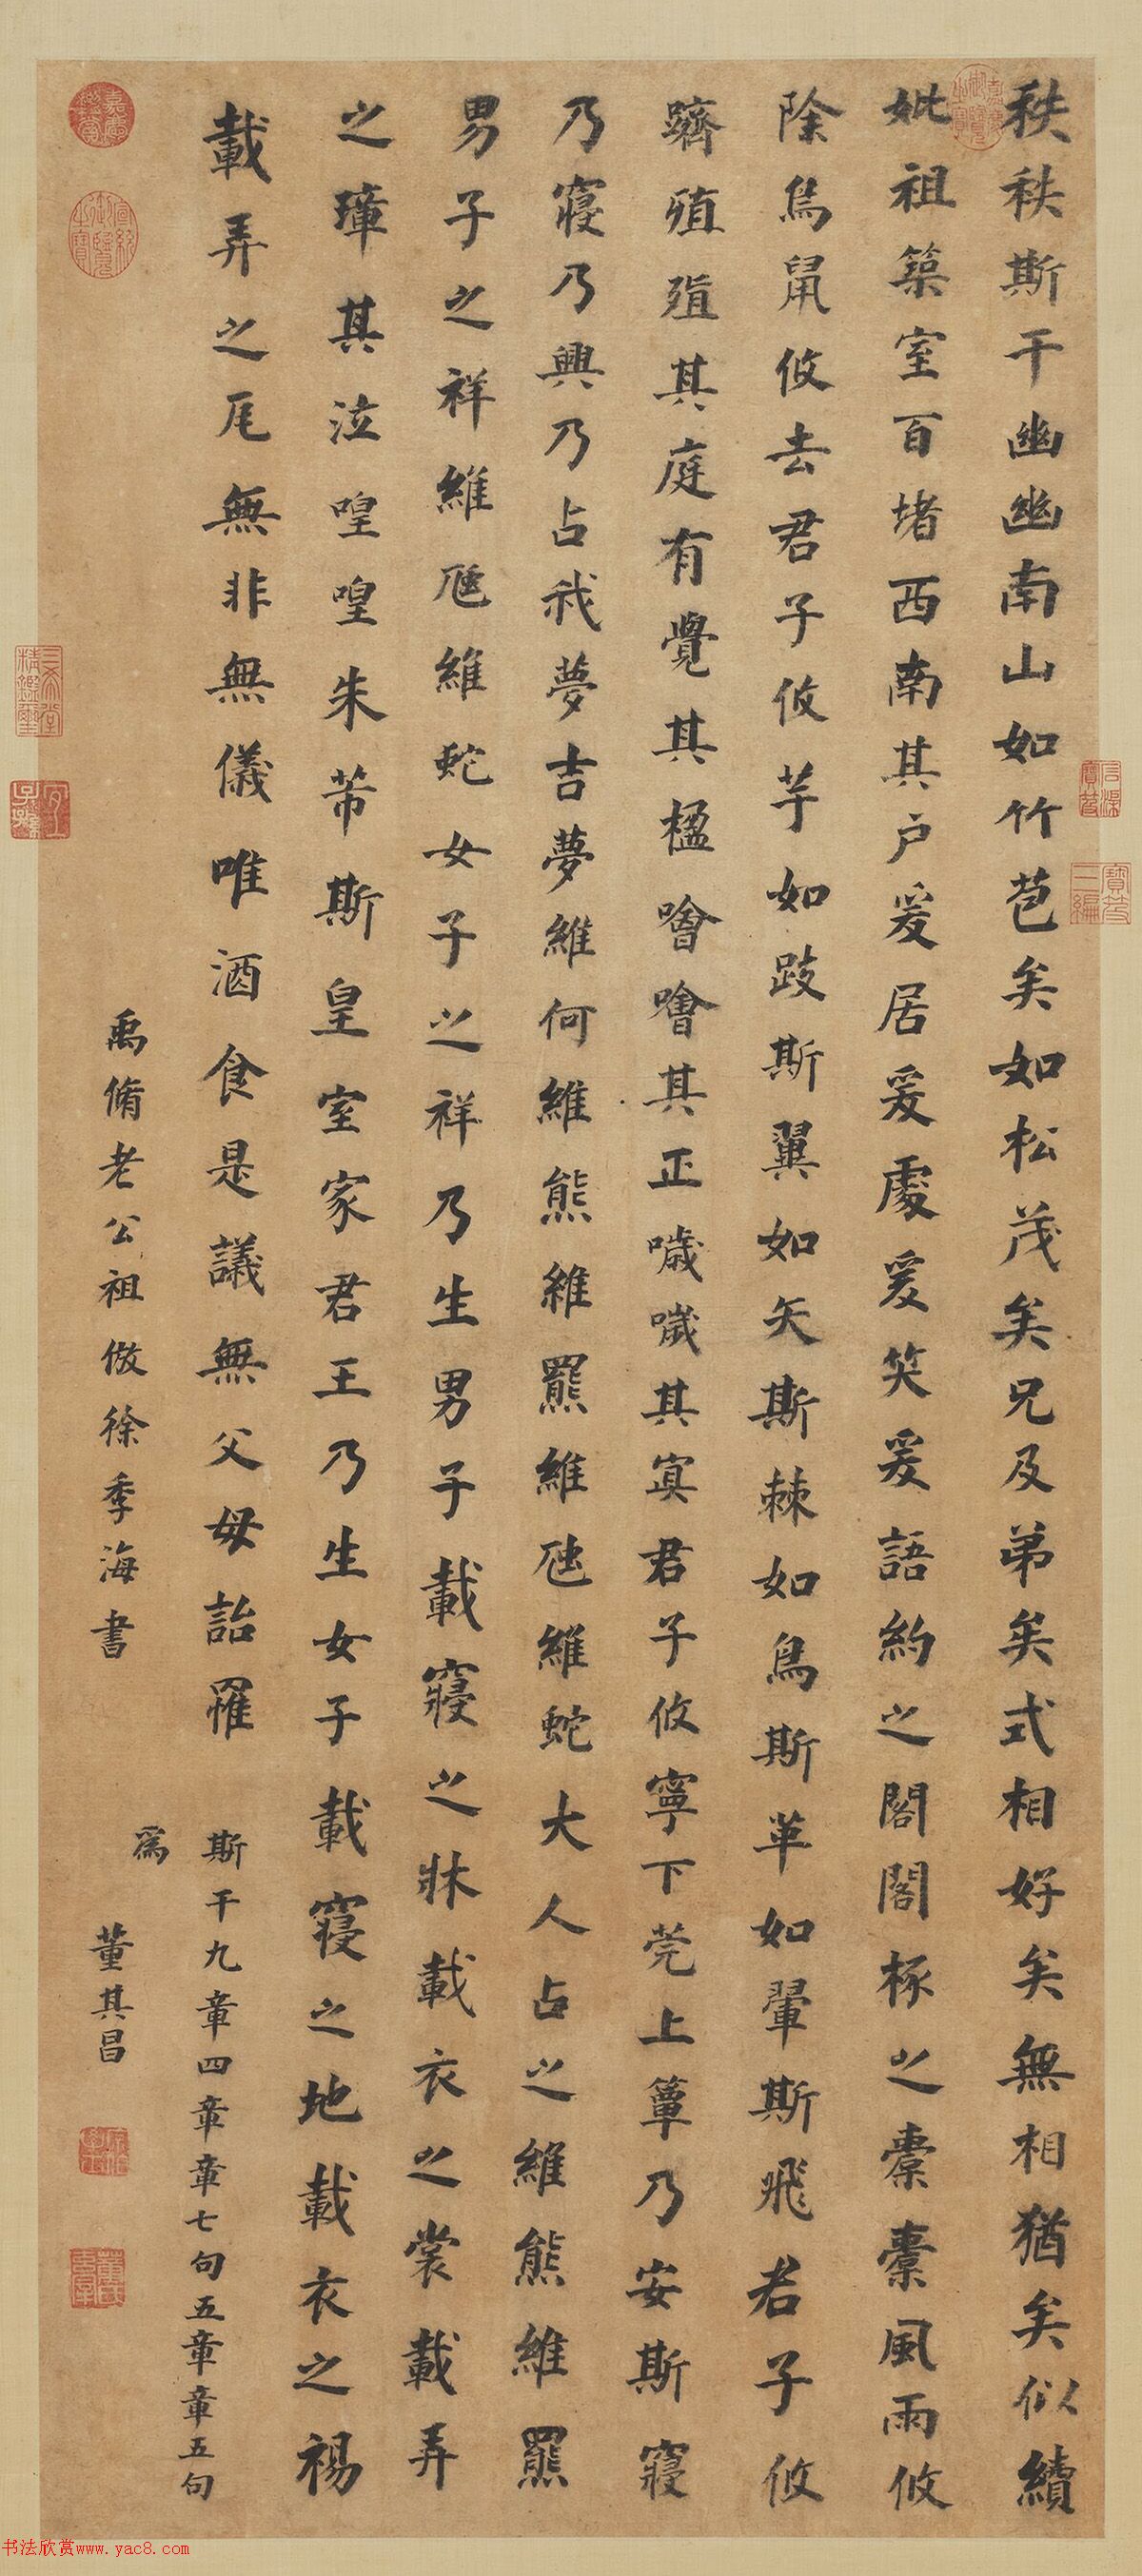 秩秩斯干幽幽南山如竹苞矣如松茂矣兄及弟矣式相好矣無相猶矣似續
妣祖築室百堵西南其户爰居爰處爰笑爰語約之閣閣椓之橐橐風雨攸
除鳥鼠攸去君子攸芋如跂斯翼如矢斯棘如鳥斯革如翬斯飛君子攸
躋殖殖其庭有覺其楹噲噲其正噦噦其冥君子攸寧下莞上簟乃安斯寢
乃寢乃興乃占我夢吉夢維何維熊維羆維虺維蛇大人占之維熊維羆
男子之祥維虺維蛇女子之祥乃生男子載寢之牀載衣之裳載弄
之璋其泣喤喤朱芾斯皇室家君王乃生女子載寢之地載衣之裼
載弄之瓦無非無儀唯酒食是議無父母詒罹
斯干九章四章章七句五章章五句
爲
禹脩老公祖倣徐季海書
董其昌
嘉慶御覽之寶
宣統御覽之寶
三希堂精鑑璽
宜子孫
石渠寶笈
寶笈三編
书法欣赏www.yac8.com